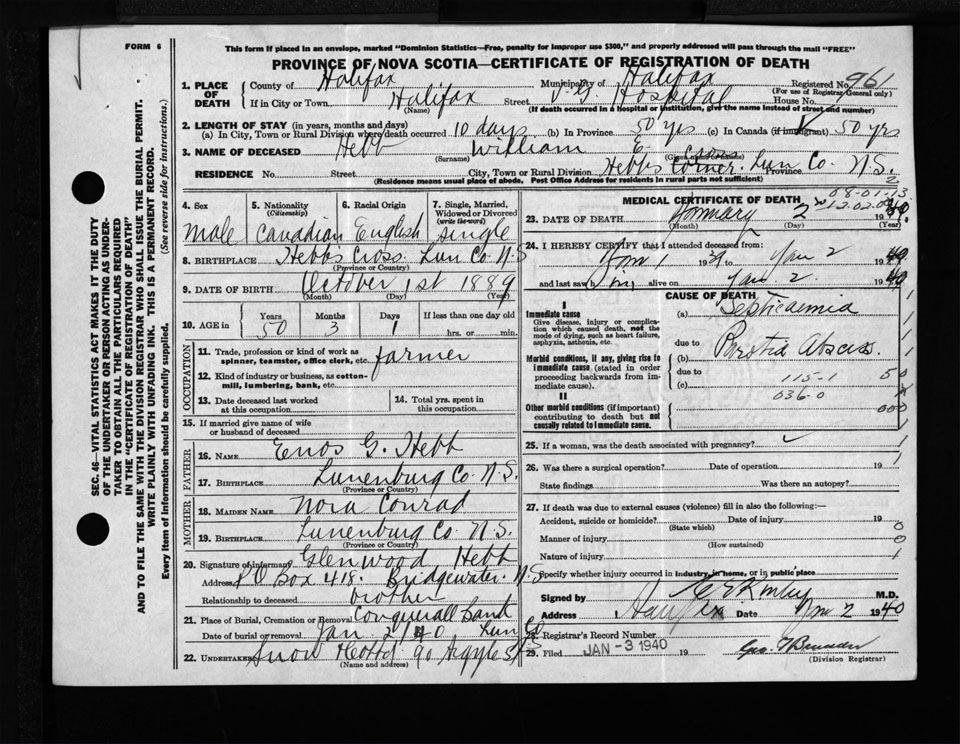 FORM 6
This form if placed in an envelope, marked "Dominion Statistics—Free, penalty for improper use $300," and properly addressed will pass through the mail "FREE"
PROVINCE OF NOVA SCOTIA—CERTIFICATE OF REGISTRATION OF DEATH
1. PLACE OF DEATH
County of Halifax Municipality of Halifax Registered No. 961
(For use of Registrar General only)
If in City or Town Halifax Street V. G. Hospital House No.
(Name) (If death occurred in a hospital or institution, give the name instead of street and number)
2. LENGTH OF STAY (in years, months and days)
(a) In City, Town or Rural Division where death occurred 10 days (b) In Province 50 yrs (c) In Canada (if immigrant) 50 yrs
3. NAME OF DECEASED Hebb William E.
(Surname) (Given
RESIDENCE No. Street City, Town or Rural Division Hebbs Cross Corner. Lun Co. Province N.S.
(Residence means usual place of abode. Post Office Address for residents in rural parts not sufficient)
4. Sex Male
5. Nationality (Citizenship) Canadian
6. Racial Origin English
7. Single, Married, Widowed or Divorced (write the word) Single
8. BIRTHPLACE Hebbs Cross. Lun Co N.S
(Province or Country)
9. DATE OF BIRTH October 1st 1889
(Month) (Day) (Year)
10. AGE in Years 50 Months 3 Days 1 If less than one day old hrs. or min.
OCCUPATION
11. Trade, profession or kind of work as spinner, teamster, office clerk, etc. farmer
12. Kind of industry or business, as cotton-mill, lumbering, bank, etc.
13. Date deceased last worked at this occupation
14. Total yrs. spent in this occupation
15. If married give name of wife or husband of deceased
FATHER
16. NAME Enos G. Hebb
17. BIRTHPLACE Lunenburg Co N.S.
(Province or Country)
MOTHER
18. MAIDEN NAME Nora Conrad
19. BIRTHPLACE Lunenburg Co N.S.
(Province or Country)
20. Signature of informant Glenwood Hebb
Address P.O Box 418. Bridgewater N.S
Relationship to deceased brother
21. Place of Burial, Cremation or Removal Conquerall
Date of burial or removal Jan. 2/40 Lun
22. Undertaker Snow 90 Argyle St
(Name and address)
MEDICAL CERTIFICATE OF DEATH
08-01-13
23. DATE OF DEATH January 2 19
(Month) (Day) (Year)
24. I HEREBY CERTIFY that I attended deceased from:
19 to Jan 2 1940
and last saw him alive on Jan 2. 1940
CAUSE OF DEATH
I
Immediate cause
Give disease, injury or complication which caused death, not the mode of dying, such as heart failure, asphyxia, asthenia, etc.
(a) Septicaemia
due to
Morbid conditions, if any, giving rise to immediate cause (stated in order proceeding backwards from immediate cause).
(b) Parotid Abscess.
due to
(c) 115-1
036-0
II
Other morbid conditions (if important) contributing to death but not causally related to immediate cause.
25. If a woman, was the death associated with pregnancy?
26. Was there a surgical operation? Date of operation 19
State findings Was there an autopsy?
27. If death was due to external causes (violence) fill in also the following:—
Accident, suicide or homicide? Date of injury 19
(State which)
Manner of injury
(How sustained)
Nature of injury
Specify whether injury occurred in industry, in home, or in public place
Signed by M.D.
Address Halifax Date Jan 2 1940
28. Registrar's Record Number
29. Filed JAN -3 1940 19
(Division Registrar)
SEC. 46—VITAL STATISTICS ACT MAKES IT THE DUTY OF THE UNDERTAKER OR PERSON ACTING AS UNDERTAKER TO OBTAIN ALL THE PARTICULARS REQUIRED IN THE "CERTIFICATE OF REGISTRATION OF DEATH" AND TO FILE THE SAME WITH THE DIVISION REGISTRAR WHO SHALL ISSUE THE BURIAL PERMIT.
WRITE PLAINLY WITH UNFADING INK. THIS IS A PERMANENT RECORD.
Every item of information should be carefully supplied. (See reverse side for instructions.)